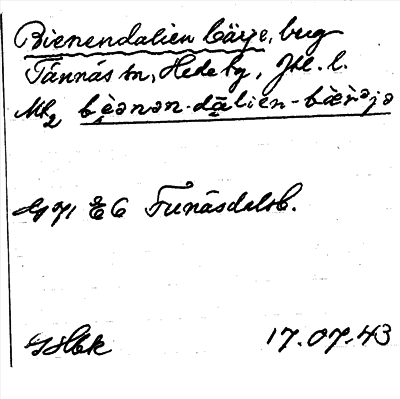 Bienendalien bärje, berg
Tännäs sn, Hede tg, Jtl. l.
b e̯ànan-dālien-bæ̀r̀əjə
E6 Funäsdalsb.
17.07.43